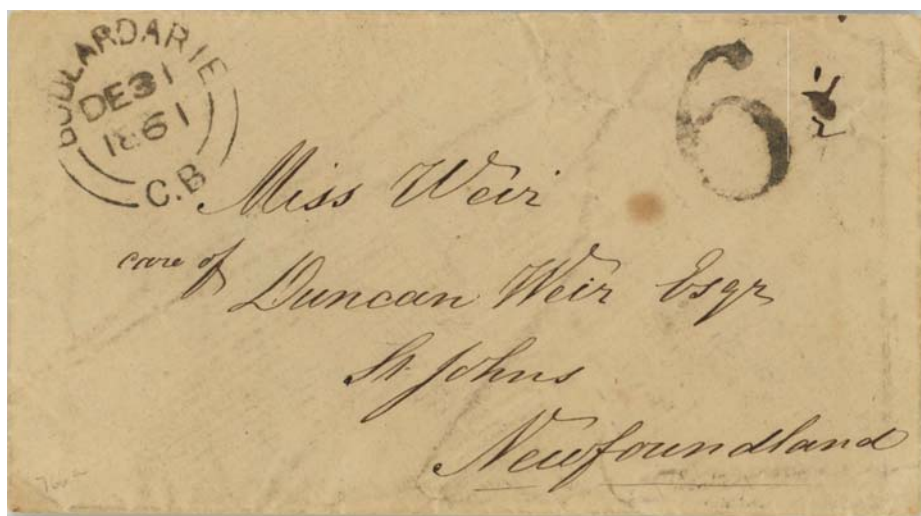 BOULARDARIE
DE 31
1861
C.B
6 1/2
Miss Weir
care of
Duncan Weir Esqr
St. Johns
Newfoundland